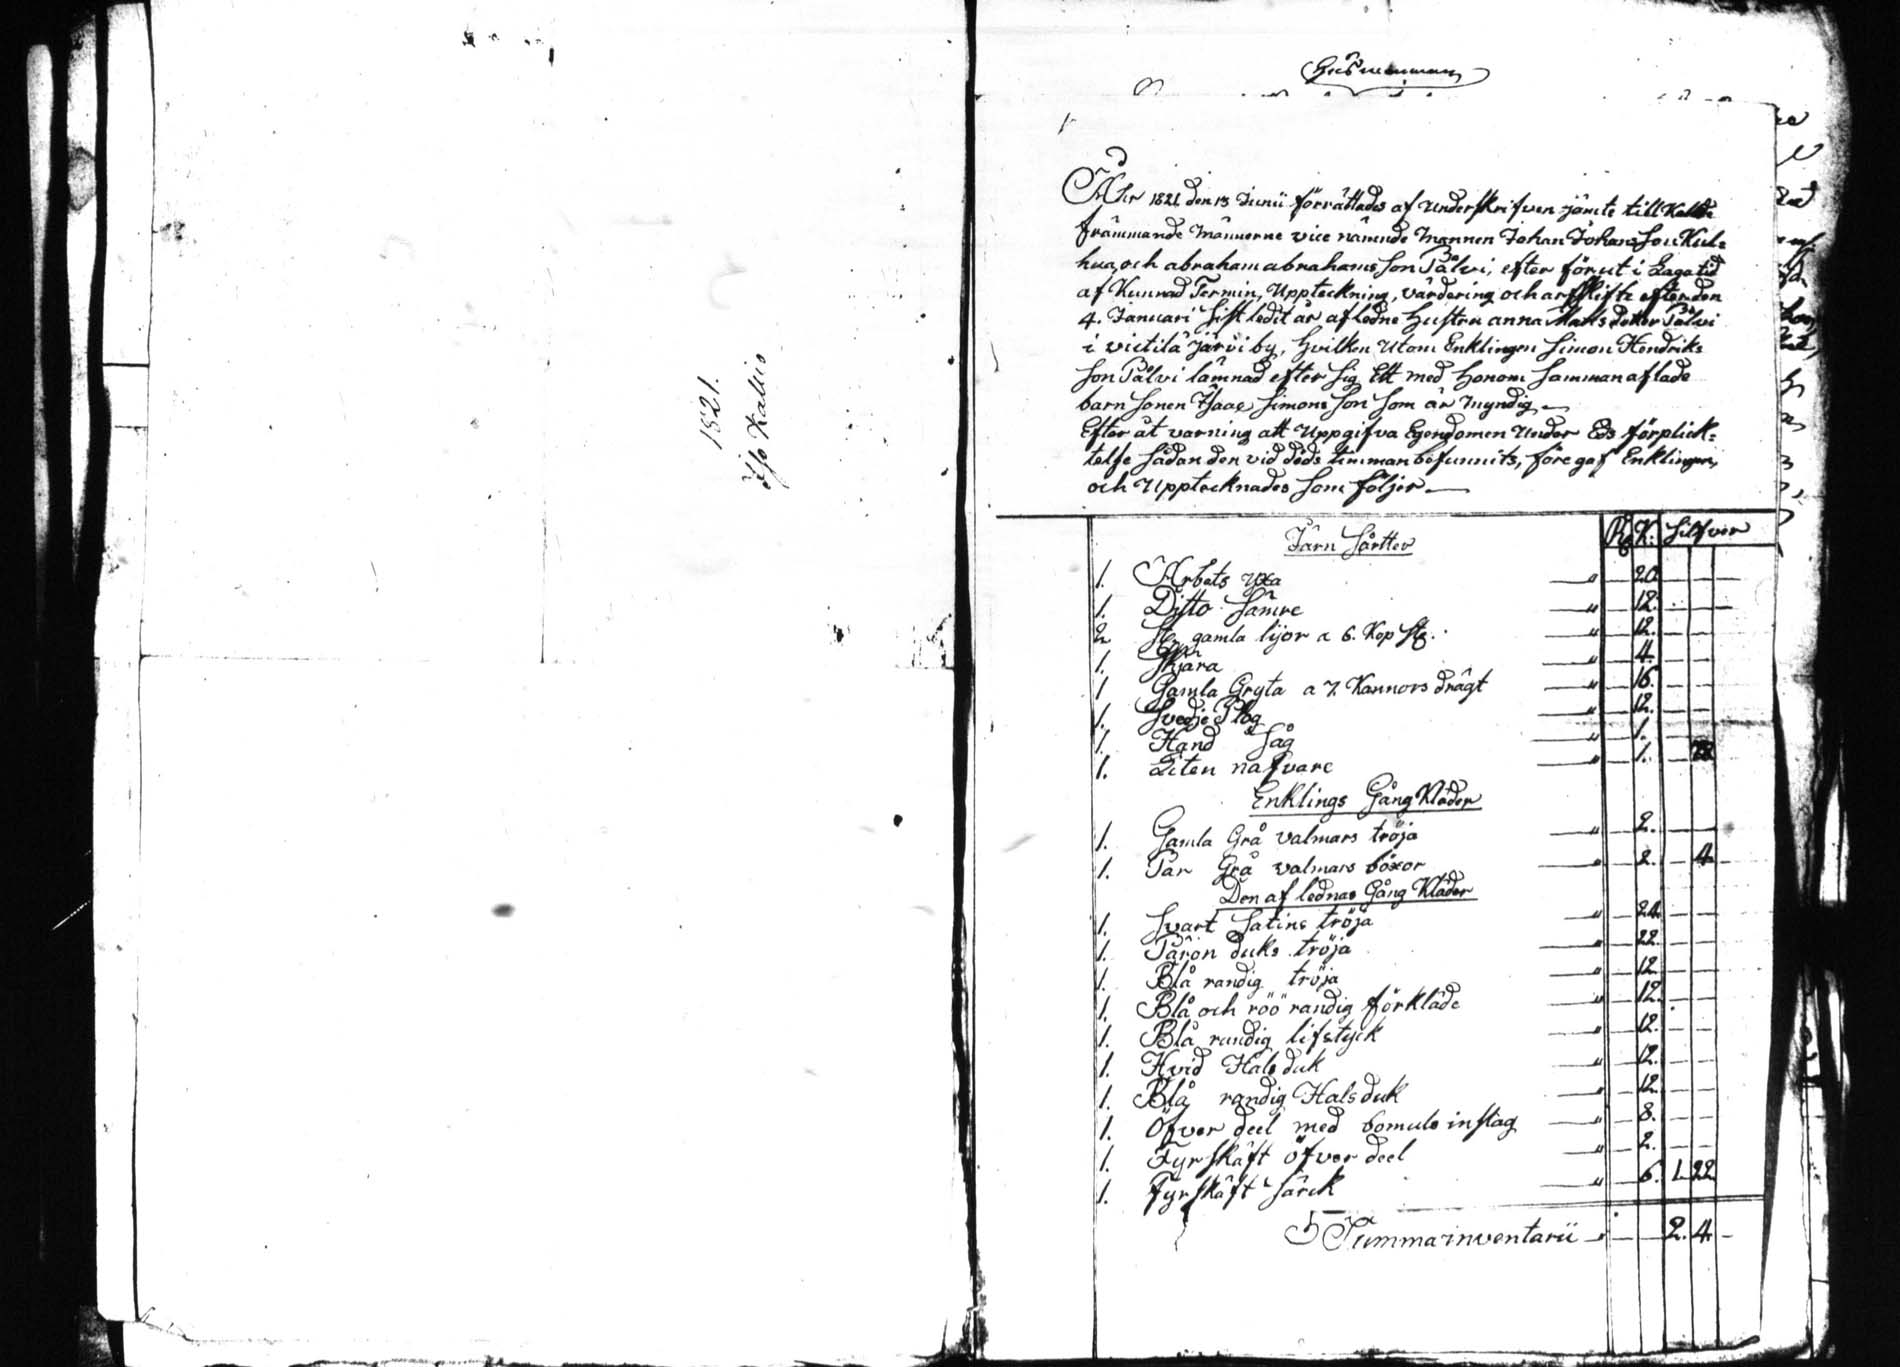 1821.
Iso Kallio
Åhr 1821 den 13 Junii förrättades af underskrifven jämte till Kallade
främmande Männerne vice nämnde Mannen Johan Johans Son Kul=
hua, och abraham abrahams Son Pålvi, efter förut i Laga tid
af Kunnad Termin, Uppteckning, värdering och arfskifte efter den
4. Januari sist ledit år afledne Hustru anna Matts dotter Pålvi
i victilä Järvi by, Hvilken utom Enklingen Simon Hendriks
Son Pålvi lämnad efter sig Ett med honom Samman aflade
barn Sonen Isaac Simons Son Som är Myndig
Efter åt varning att Uppgifva Egendomen Under Eds förplick=
telse Sådan den vid döds timman befunnits, före gaf Enklingen,
och Upptecknades Som följer
Järn Sårtter R K. Silfver
1. Arbets yxa " 20
1. Ditto Sämre " 12.
2 St. gamla lijor a 6. Kop St. " 12.
1. Skjära " 4.
1 Gamla Gryta a 7. Kannors drägt " 16.
1. Svedje Plog " 12.
1. Hand Såg " 1.
1. Liten nafvare " 1.
Enklings Gång Kläder
1. Gamla Grå valmars tröja " 2.
1. Par Grå valmars böxor " 2. 4.
Den af lednas Gång Kläder
1. Svart Satins tröja " 24.
1. Päron duks tröja " 22.
1. Blå randig tröja " 12.
1. Blå och röö randig förkläde " 12.
1. Blå randig lifstyck " 12.
1. Hvid Hals duk " 12.
1. Blå randig Hals duk " 12.
1. Öfver deel med bomuls inslag " 8.
1. Fyrskäft öfver deel " 2.
1. Fyrskäft Särck " 6. 1. 22
Summa inventarii " 2. 4.